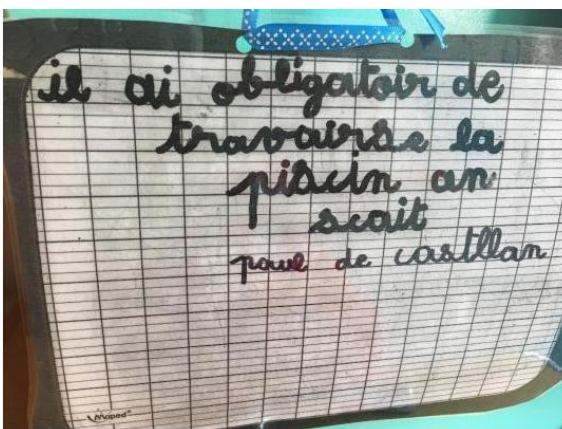 il ai obligatoir de
travairse la
piscin an
scait
paul de castllan
Maped